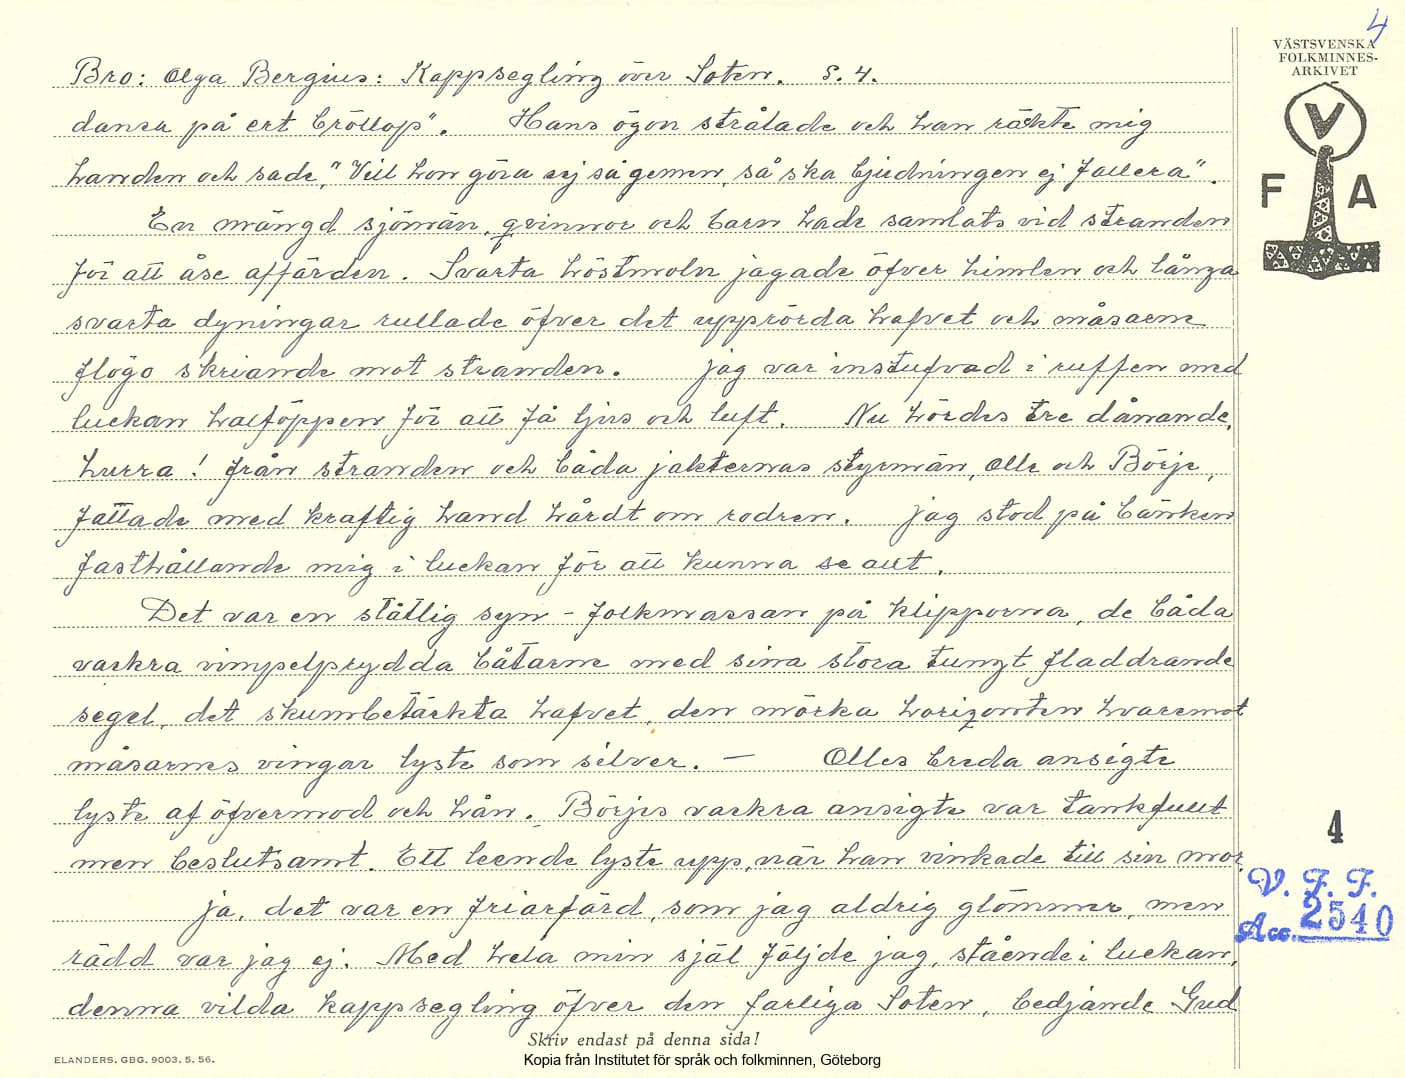 4
VÄSTSVENSKA
FOLKMINNES-
ARKIVET
V
F A
Bro: Olga Bergius: Kappsegling över Soten. S. 4.
dansa på ert bröllop". Hans ögon strålade och han räkte mig
handen och sade, "Vill hon göra ej så gemen, så ska bjudningen ej fallera".
En mängd sjömän, qvinnor och barn hade samlats vid stranden
för att åse affärden. Svarta höstmoln jagade öfver himlen och långa
svarta dyningar rullade öfver det upprörda hafvet och måsarne
flögo skriande mot stranden. jag var instufvad i ruffen med
luckan halföppen för att få ljus och luft. Nu hördes tre dånande,
hurra! från stranden och båda jakternas styrmän, Olle och Börje,
fattade med kraftig hand hårdt om rodren. jag stod på bänken
fasthållande mig i luckan för att kunna se allt.
Det var en ståtlig syn - folkmassan på klipporna, de båda
vackra vimpelprydda båtarne med sina stora tungt fladdrande
segel, det skumbetäckta hafvet, den mörka horizonten hvaremot
måsarnes vingar lyste som silver. — Olles breda ansigte
lyste af öfvermod och hån. Börjes vackra ansigte var tankfullt
men beslutsamt. Ett leende lyste upp, när han vinkade till sin mor.
ja, det var en friarfärd, som jag aldrig glömmer, men
rädd var jag ej. Med hela min själ följde jag, stående i luckan,
denna vilda kappsegling öfver den farliga Soten, bedjande Gud
4
V. F. F.
Acc. 2540
Skriv endast på denna sida!
ELANDERS. GBG. 9003. 5. 56.
Kopia från Institutet för språk och folkminnen, Göteborg